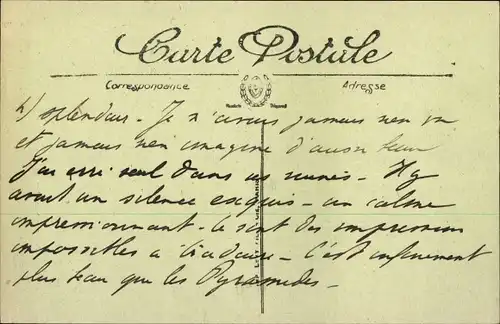 Carte Postale
Correspondance
Adresse
4) splendeur - Je n'avais jamais rien vu
et jamais rien imaginé d'aussi beau
J'ai erré seul dans ces ruines - Il y
avait un silence exquis - un calme
impressionnant - Ce sont des impressions
impossibles à traduire - C'est infiniment
plus beau que les Pyramides -